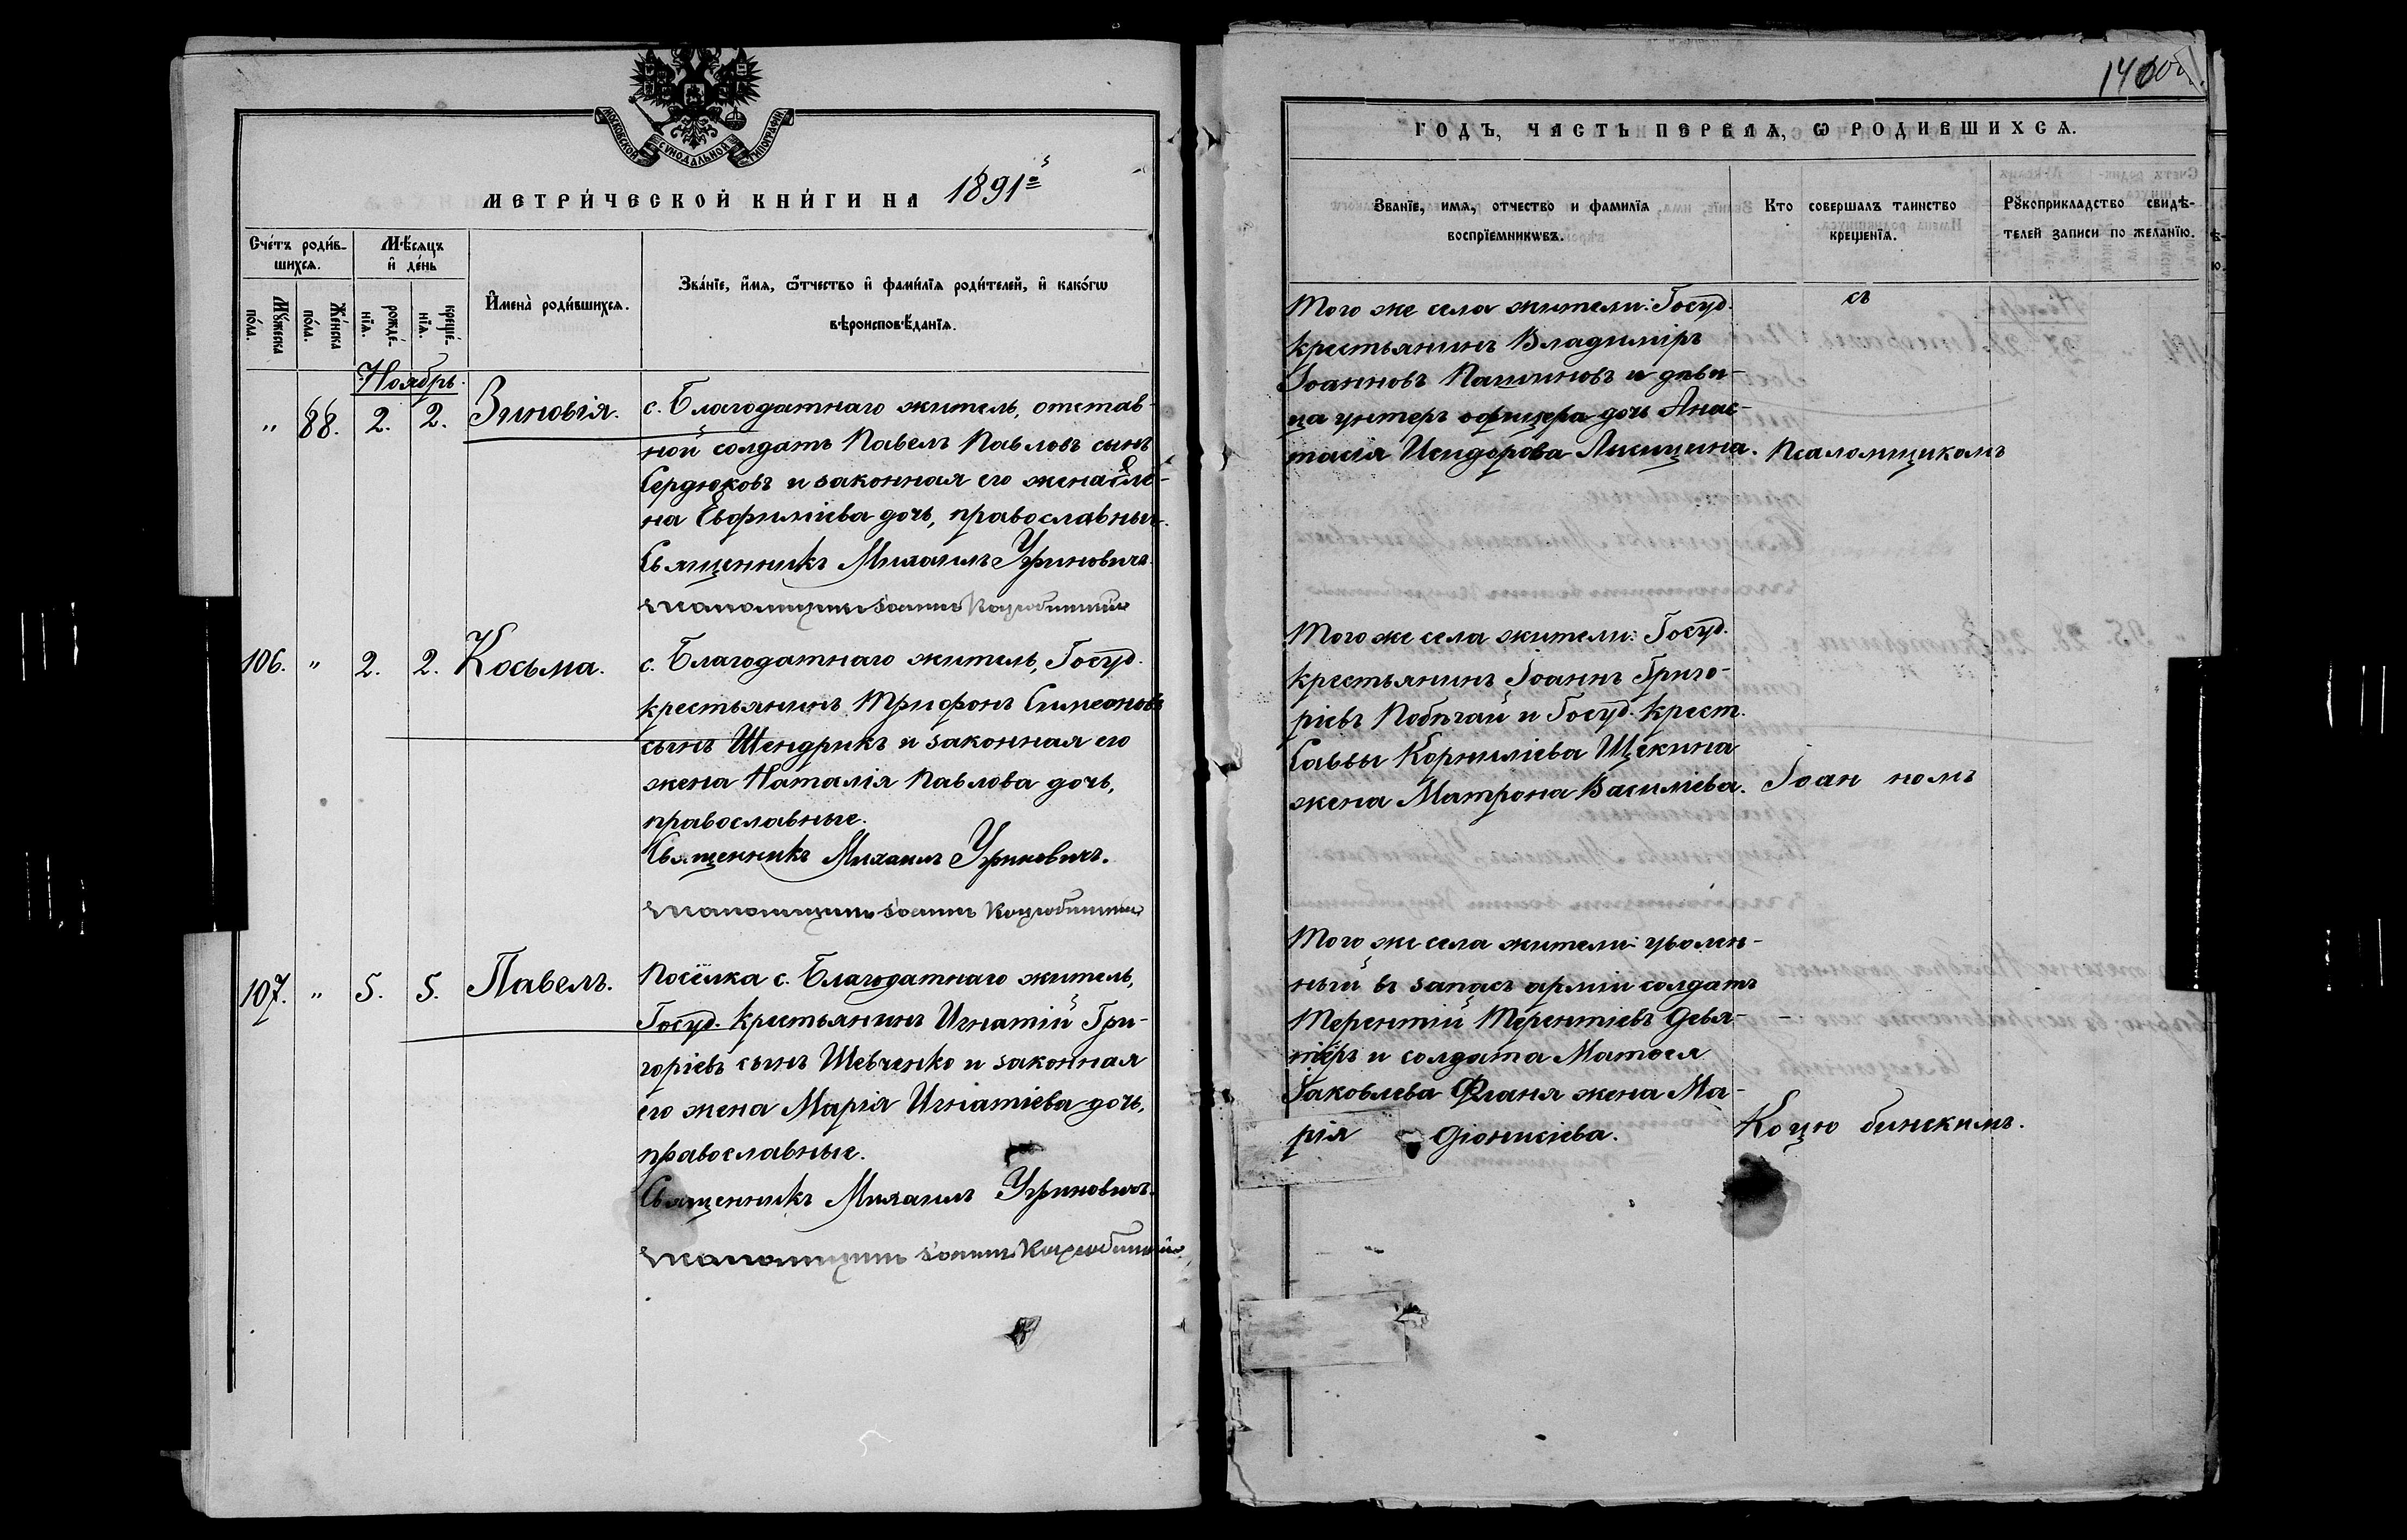 МОСКОВСКОЙ СѴНОДАЛЬНОЙ ТИПОГРАФІИ
МЕТРИ́ЧЕСКОЙ КНИ́ГИ НА 1891й
Сче́тъ роди́в-
шихсѧ.
Мѣсѧцъ
и҆ де́нь
Мꙋ́жеска
по́ла.
Же́нска
по́ла.
рожде́-
нїѧ.
креще́-
нїѧ.
И҆мена̀ роди́вшихсѧ.
Зва́нїе, и҆́мѧ, ѻ҆́тчество и҆ фами́лїѧ роди́телей, и҆ како́гѡ
вѣроисповѣ́данїѧ.
Ноябрь.
" 88. 2. 2. Зиновія.
с. Благодатнаго житель, отстав-
ной солдатъ Павелъ Павловъ сынъ
Сердюковъ и законная его жена Еле-
на Евфиміева дочь, православные.
Священникъ Михаилъ Угриновичъ.
Псаломщикъ Іоаннъ Коцюбинскій
106. " 2. 2. Косьма.
с. Благодатнаго житель, Госуд.
крестьянинъ Трифонъ Симеоновъ
сынъ Шендрикъ и законная его
жена Наталія Павлова дочь,
православные.
Священникъ Михаилъ Угриновичъ.
Псаломщикъ Іоаннъ Коцюбинскій
107. " 5. 5. Павелъ.
Посёлка с. Благодатнаго житель,
Госуд. крестьянинъ Игнатій Гри-
горіевъ сынъ Шевченко и законная
его жена Марія Игнатіева дочь,
православные.
Священникъ Михаилъ Угриновичъ.
Псаломщикъ Іоаннъ Коцюбинскій
140 об.
ГОДЪ, ЧАСТЬ ПЕРВАѦ, Ѡ РОДИВШИХСѦ.
Званїе, имѧ, отчество и фамилїѧ
воспрїемникѡвъ.
Кто совершалъ таинство
крещенїѧ.
Рꙋкоприкладство свидѣ-
телей записи по желанїю.
Того же села жители: Госуд.
крестьянинъ Владиміръ
Іоанновъ и дѣви-
ца унтеръ офицера дочь Анас-
тасія Исидорова Лисицина.
съ
Псаломщикомъ
Того же села жители: Госуд.
крестьянинъ Іоаннъ Григо-
ріевъ Побѣгай и Госуд. крест.
Саввы Корниліева Щекина
жена Матрона Василіева.
Іоан номъ
Того же села жители: уволен-
ный въ запасъ арміи солдатъ
Терентій Терентіевъ Девя-
и солдата Матѳея
Іаковлева жена Ма-
рія Діонисіева.
Коцю бинскимъ.